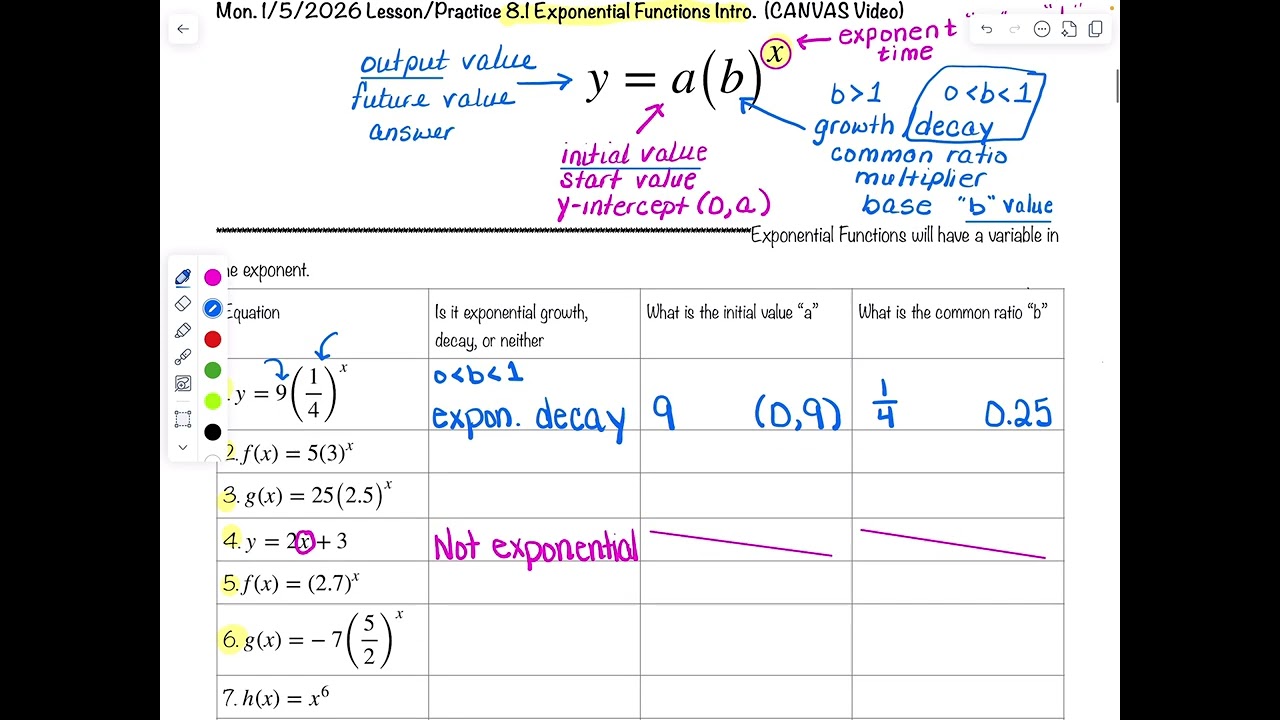 Mon. 1/5/2026 Lesson/Practice 8.1 Exponential Functions Intro. (CANVAS Video)
exponent
time
output value
future value
answer
y = a(b)^x
b>1 0<b<1
growth decay
common ratio
multiplier
base "b" value
initial value
start value
y-intercept (0,a)
Exponential Functions will have a variable in
he exponent.
Equation
Is it exponential growth,
decay, or neither
What is the initial value "a"
What is the common ratio "b"
. y = 9(1/4)^x
0<b<1
expon. decay
9 (0,9)
1/4 0.25
2. f(x) = 5(3)^x
3. g(x) = 25(2.5)^x
4. y = 2x + 3
Not exponential
5. f(x) = (2.7)^x
6. g(x) = − 7(5/2)^x
7. h(x) = x^6